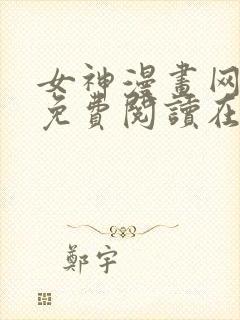 女神漫畫网
免費閱讀在
鄭宇